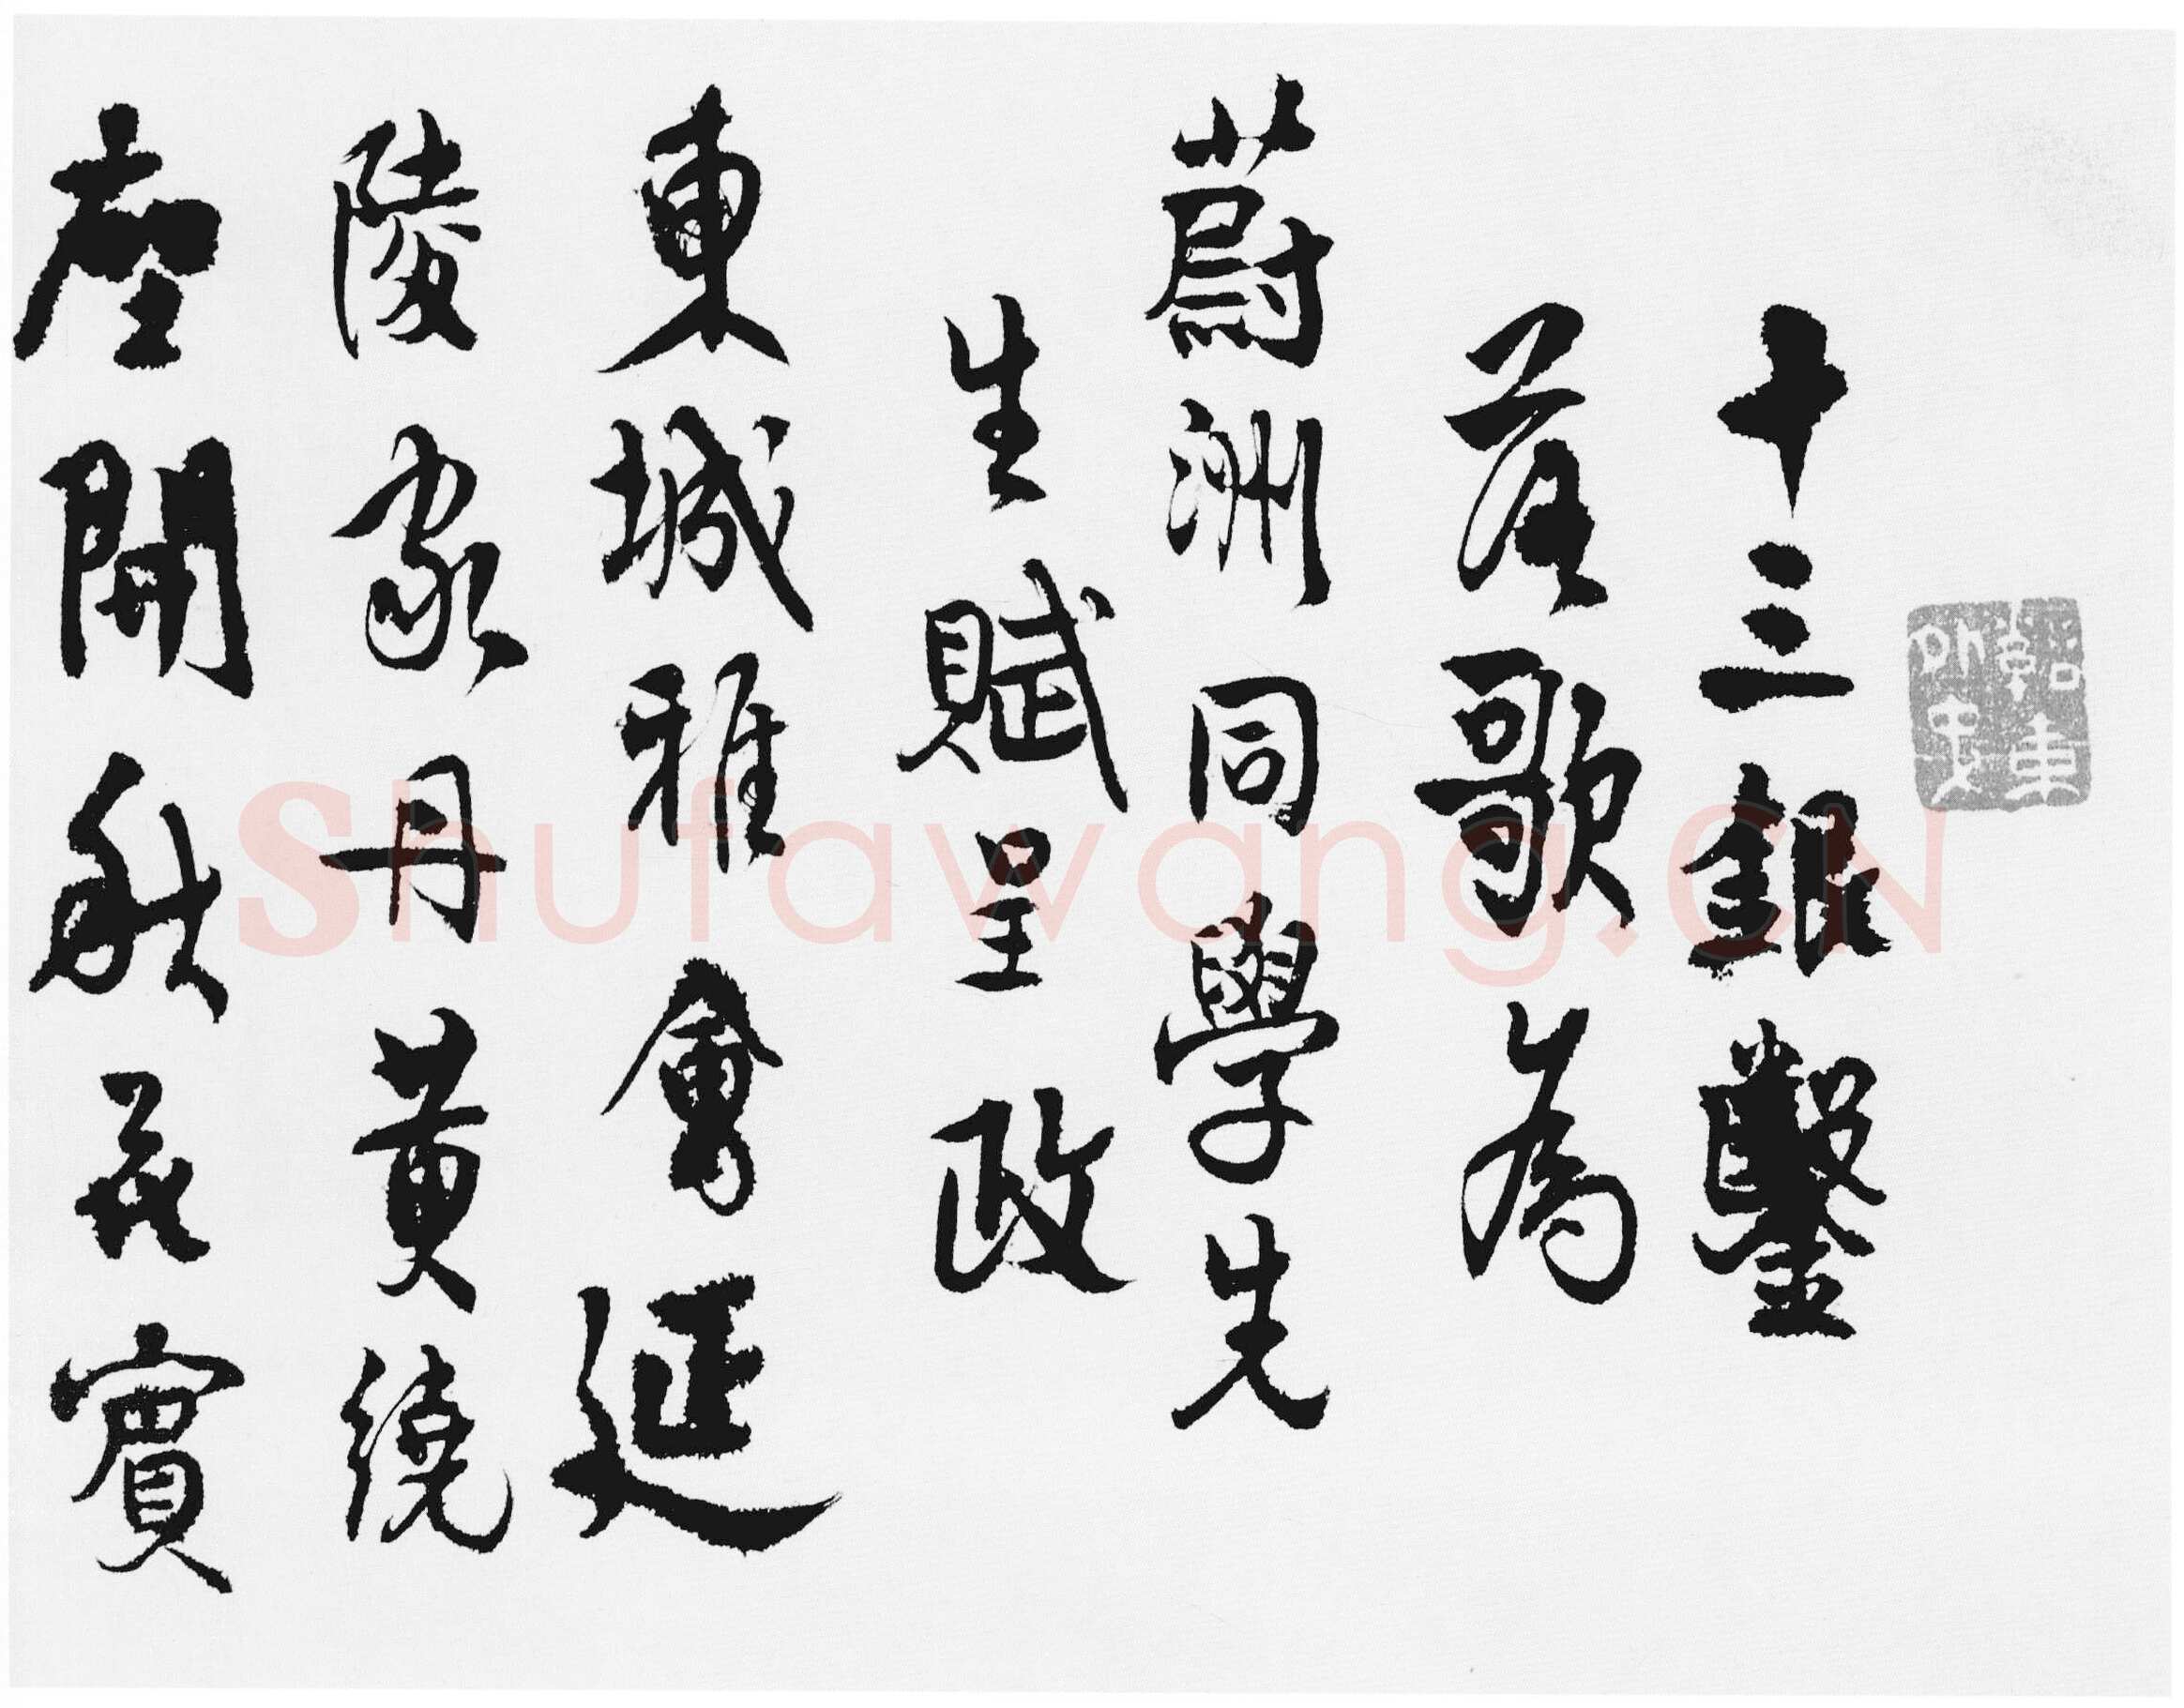 十三銀鑿
落歌為
蔚洲同學先
生賦呈政
東城雅會延
陵家丹黄繞
座開秋花賓
Shufawang.CN